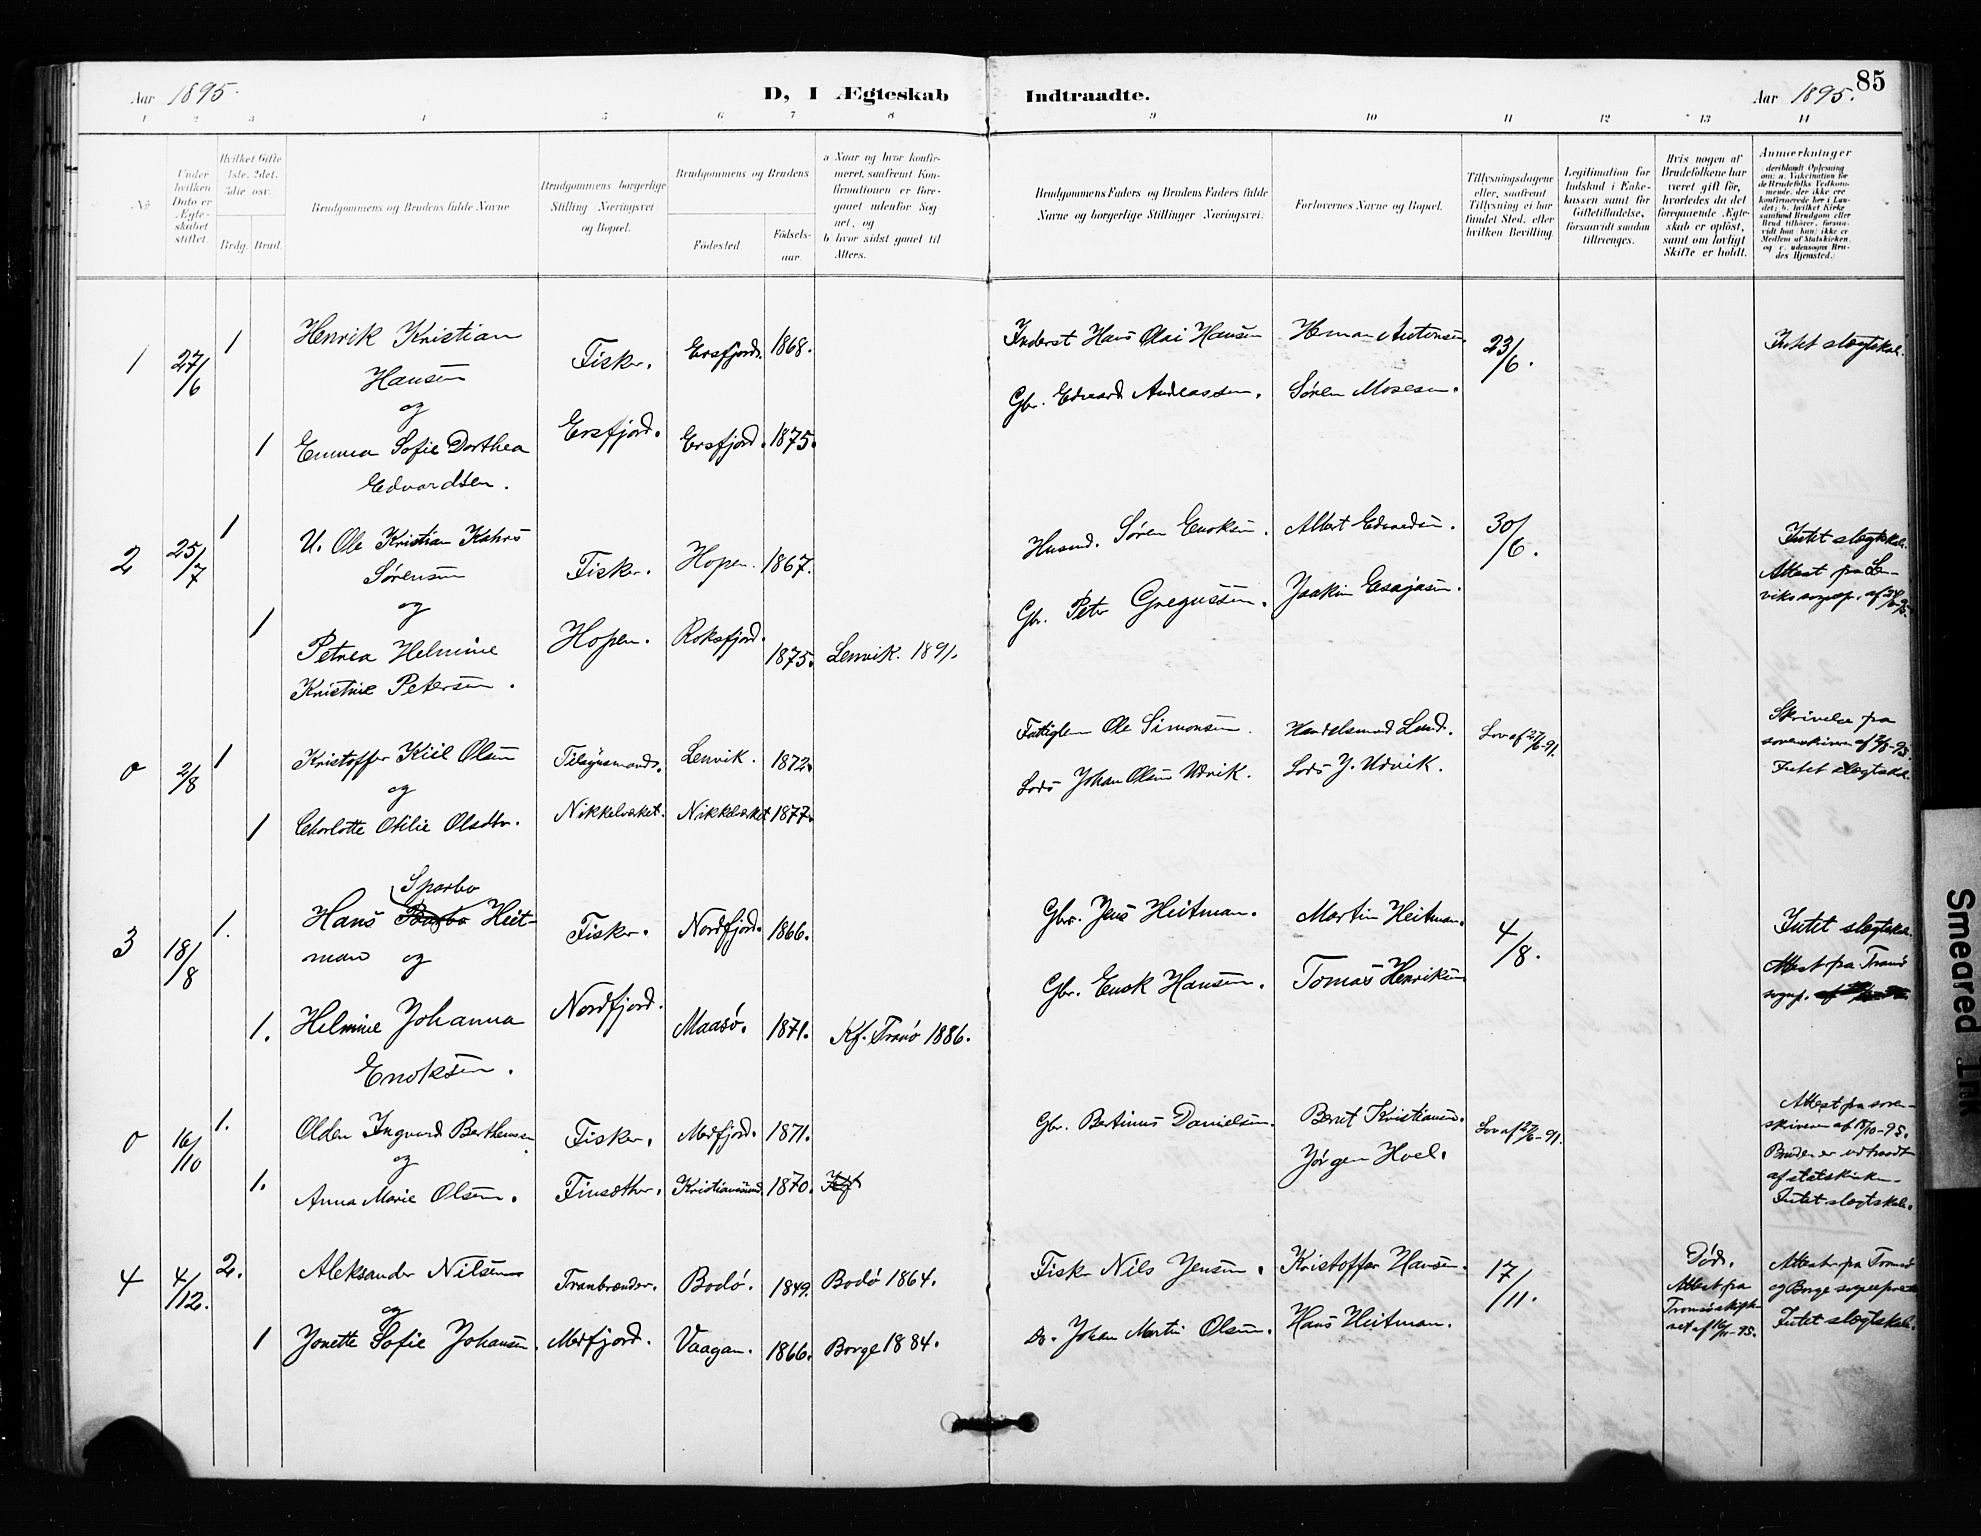 85
Aar 1895.
D, I Ægteskab
Indtraadte.
Aar 1895.
1 2 3 4 5 6 7 8 9 10 11 12 13 14
No
Under hvilken Dato er Ægteskabet stiftet.
Hvilket Gifte
Brdg. Brud.
Brudgommens og Brudens fulde Navne
Brudgommens borgerlige Stilling (Næringsvei) og Bopæl.
Brudgommens og Brudens
Fødested.
Fødselsaar.
a Naar og hvor konfirmeret, saafremt Konfirmationen er foregaaet udenfor Sognet, og
b hvor sidst gaaet til Alters.
Brudgommens Faders og Brudens Faders fulde Navne og borgerlige Stillinger (Næringsvei).
Forlovernes Navne og Bopæl.
Tillysningsdagene eller, saafremt Tillysning ei har fundet Sted, efter hvilken Bevilling
Legitimation for Indskud i Enkekassen samt for Giftetilladelse, forsaavidt saadan tiltrænges.
Hvis nogen af Brudefolkene har været gift før, hvorledes da det foregaaende Ægteskab er opløst, samt om lovligt Skifte er holdt.
Anmærkninger
1 27/6 1
Henrik Kristian
Hansen
og
1 Emma Sofie Dorthea
Edvardsen.
Fisker.
Ersfjord.
Ersfjord. 1868.
Ersfjord. 1875.
Inderst Hans Olai Hansen
Gbr. Edvard Andreassen.
Herman Antonsen.
Søren Mosesen.
23/6.
Intet slægtskab.
2 25/7 1
U. Ole Kristian Kahrs
Sørensen
og
1 Petrea Helmine
Kristine Petersen.
Fisker.
Hopen.
Hopen. 1867.
Roksfjord. 1875.
Lenvik. 1891.
Husmd. Søren Enoksen.
Gbr. Peter Gregussen.
Albert Edvardsen.
Joakim Esajasen.
30/6.
Intet slægtskab.
Attest fra Len-
viks sognep. af
0 2/8 1
Kristoffer Kiil Olsen
og
1 Charlotte Otilie Olsdtr.
Tilsynsmand.
Nikkelverket.
Lenvik. 1872.
Nikkelverket 1877.
Ole Simonsen.
Lods Johan Olsen Udvik.
Handelsmand Lund.
Lods J. Udvik.
Lov af 27/6-91.
Skrivelse fra
sorenskriveren af 2/8-95.
Intet slægtskab.
3 18/8 1.
Sparbo
Hans Heit-
man og
1. Helmine Johanna
Enoksen.
Fisker.
Nordfjord.
Nordfjord. 1866.
Maasø. 1871.
Kf. Tranø 1886.
Gbr. Jens Heitman.
Gbr. Enok Hansen.
Martin Heitman.
Tomas Henriksen
4/8.
Intet slægtskab.
Attest fra Tranø
sognep.
0 16/10 1.
Olden Ingvard Berthensen
og
1. Anna Marie Olsen.
Fisker.
Finsæther.
Mefjord. 1871.
Kristiansund. 1870. Kf
Gbr. Bertinus Danielsen.
Beret Kristiansen.
Jørgen Hoel.
Lov af 27/6-91.
Attest fra soren-
skriveren af
Bruden er udtraadt
af statskirken.
Intet slægtskab.
4 4/12. 2.
Aleksander Nilsen
og
1 Jonette Sofie Johansen.
Tranbrænder.
Mefjord.
Bodø. 1849.
Vaagan. 1866.
Bodø 1864.
Borge 1884.
Fisker Nils Jensen.
Do. Johan Martin Olsen.
Kristoffer Hansen.
Hans Heitman.
17/11.
Død.
Attest fra
Tromsø skifte-
ret af 16/11-95.
Attester fra Tromsø
og Borge sogneprester
Intet slægtskab.
Smeared Ink